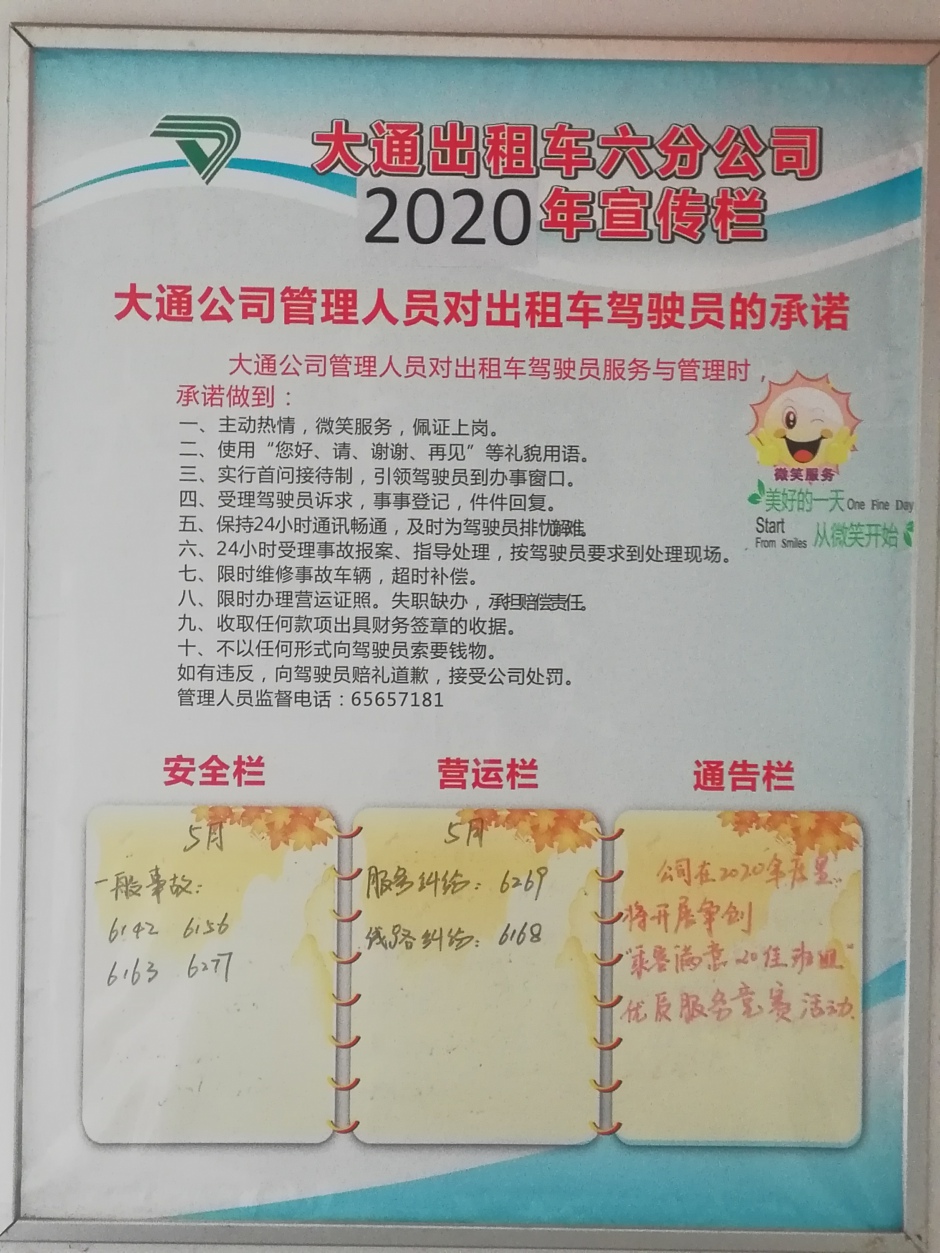 大通出租车六分公司
2020年宣传栏
大通公司管理人员对出租车驾驶员的承诺
大通公司管理人员对出租车驾驶员服务与管理时，
承诺做到：
一、主动热情，微笑服务，佩证上岗。
二、使用“您好、请、谢谢、再见”等礼貌用语。
三、实行首问接待制，引领驾驶员到办事窗口。
四、受理驾驶员诉求，事事登记，件件回复。
五、保持24小时通讯畅通，及时为驾驶员排忧解难。
六、24小时受理事故报案、指导处理，按驾驶员要求到处理现场。
七、限时维修事故车辆，超时补偿。
八、限时办理营运证照。失职缺办，承担赔偿责任。
九、收取任何款项出具财务签章的收据。
十、不以任何形式向驾驶员索要钱物。
如有违反，向驾驶员赔礼道歉，接受公司处罚。
管理人员监督电话：65657181
微笑服务
美好的一天 One Fine Day
Start
From Smiles 从微笑开始
安全栏
5月
一般事故：
6142 6156
6163 6277
营运栏
5月
服务纠纷：6269
线路纠纷：6168
通告栏
公司在2020年度
将开展争创
“乘客满意20佳班组”
优质服务竞赛活动.